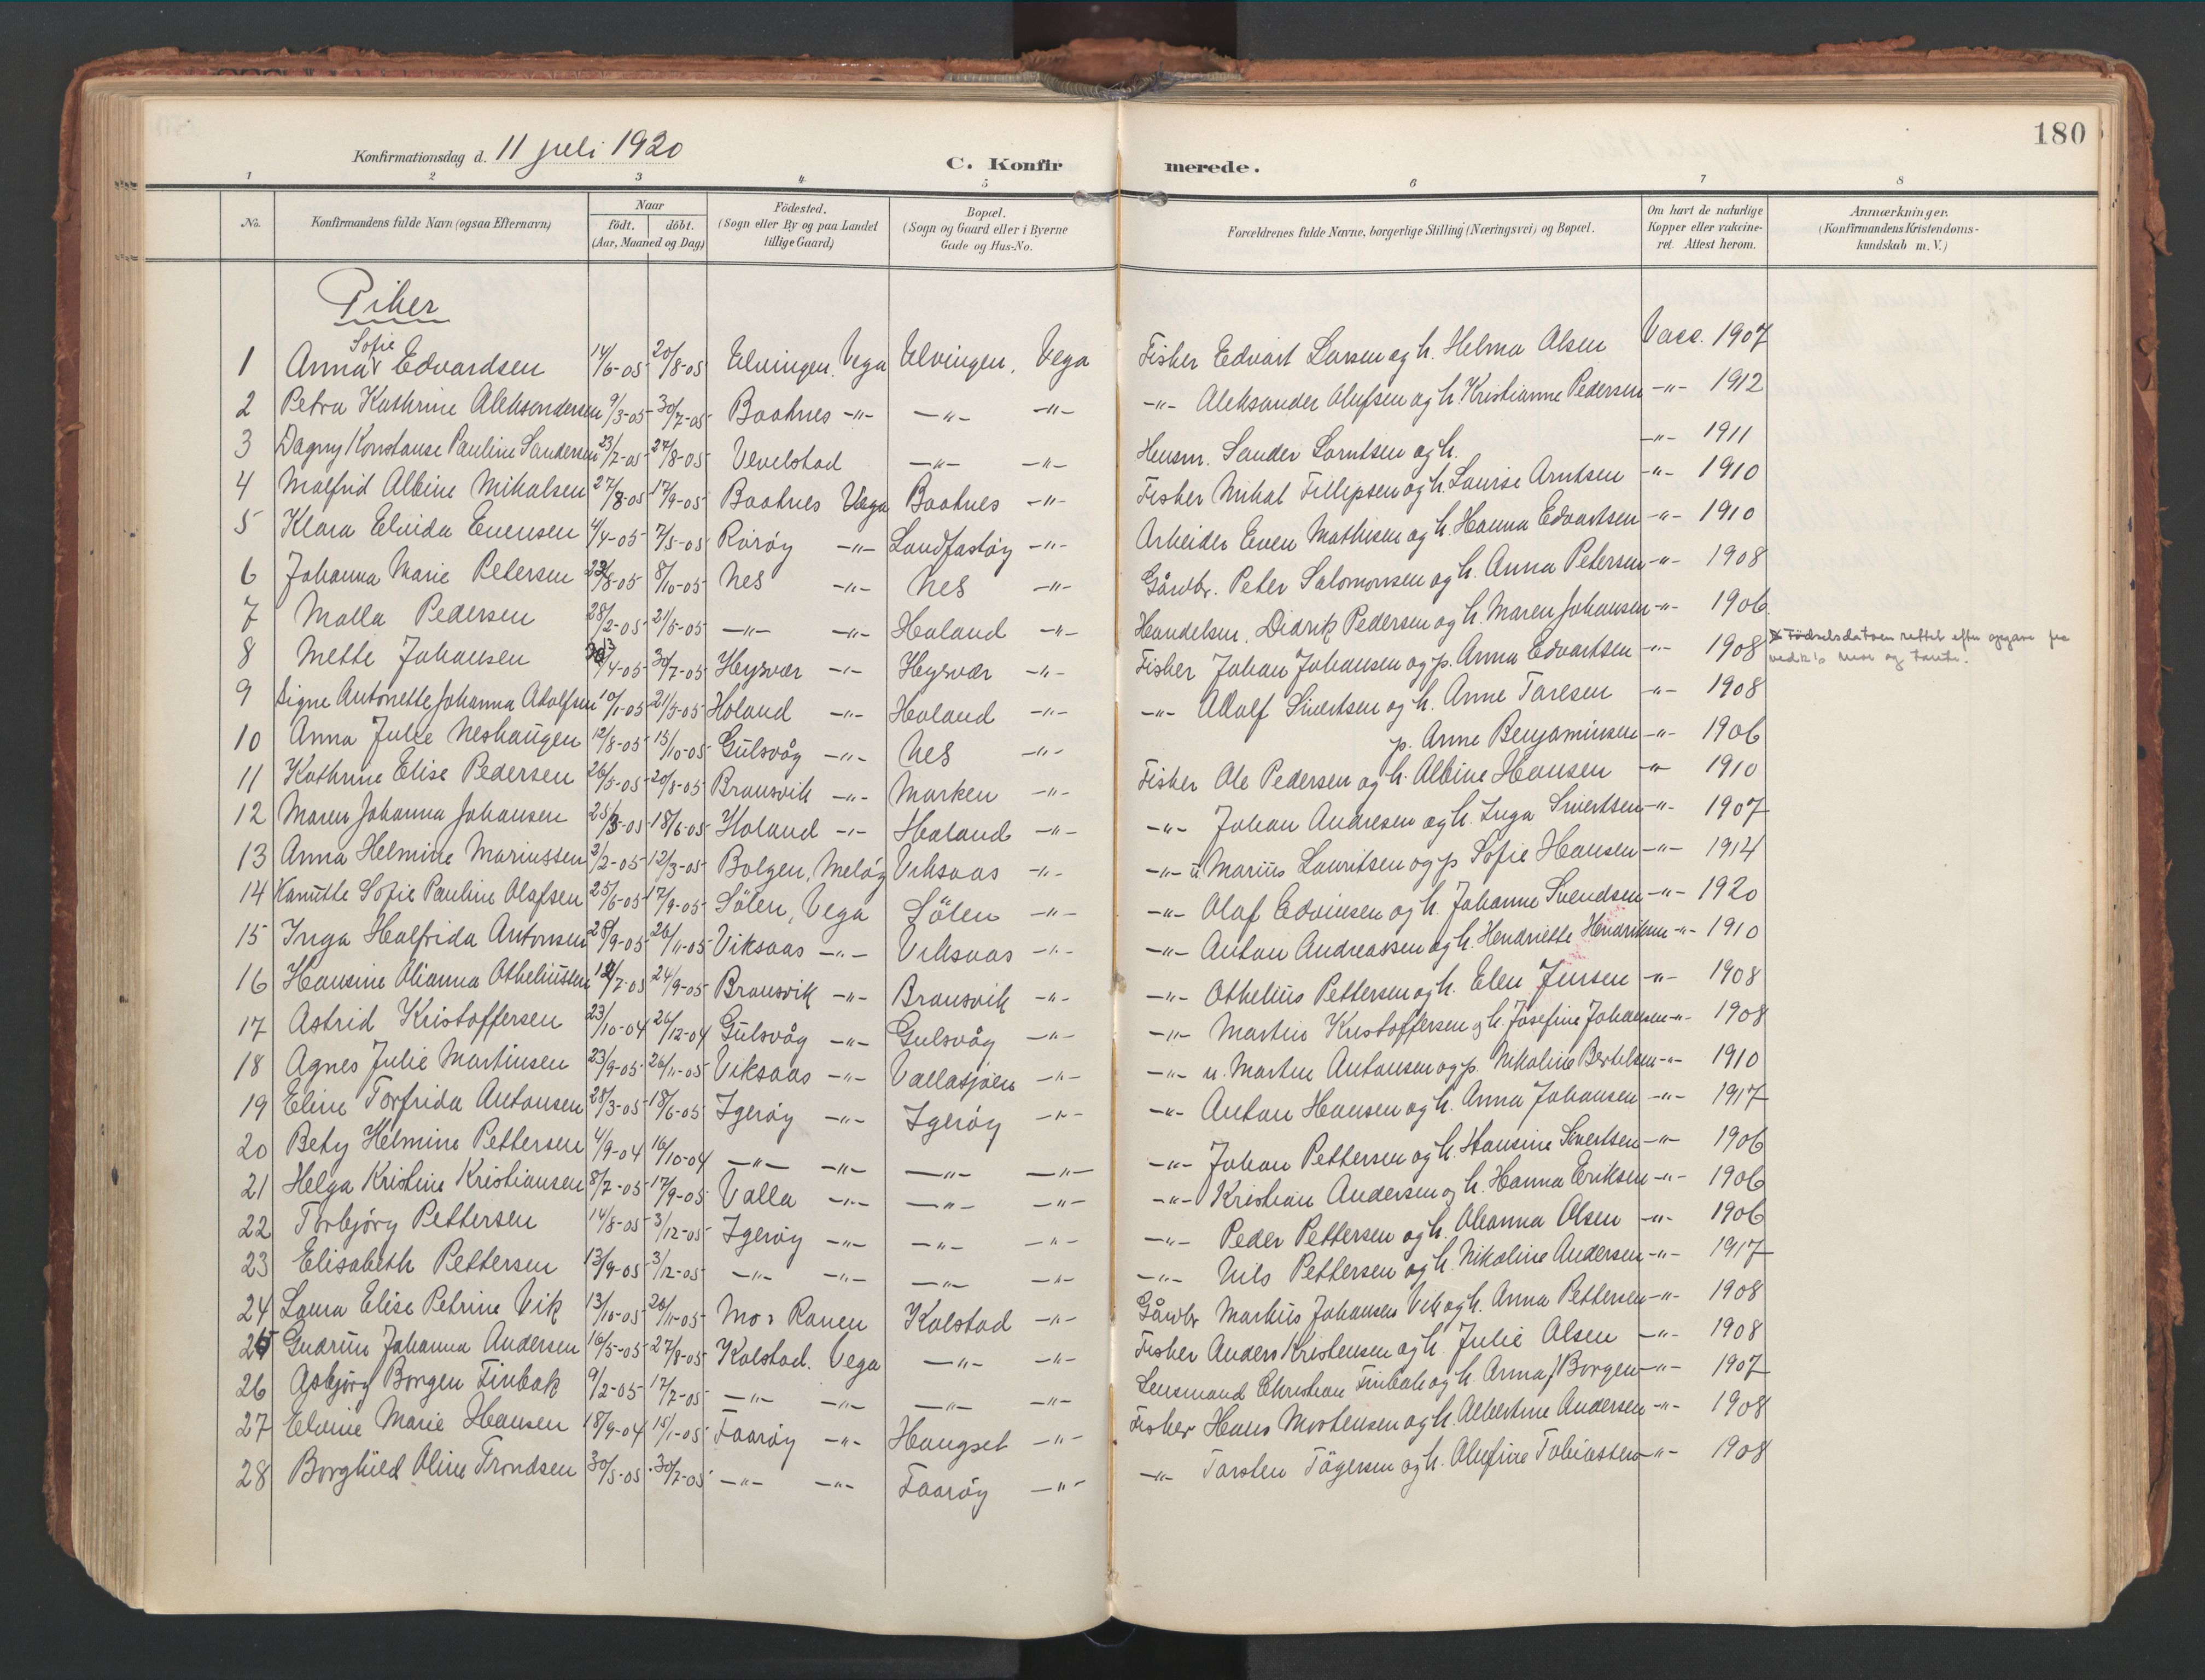 180
Konfirmationsdag d. 11 juli 1920
C. Konfirmerede.
1 2 3 4 5 6 7 8
No. Konfirmandens fulde Navn (ogsaa Efternavn) Naar födt. döbt. (Aar, Maaned og Dag) Födested. (Sogn eller By og paa Landet tillige Gaard) Bopæl. (Sogn og Gaard eller i Byerne Gade og Hus-No. Forældrenes fulde Navne, borgerlige Stilling (Næringsvei) og Bopæl. Om havt de naturlige Kopper eller vakcineret. Attest herom. Anmærkninger. (Konfirmandens Kristendomskundskab m. V.)
Piker
1 Anna Sofie Edvardsen 14/6-05 20/8-05 Elvingen, Vega Elvingen, Vega Fisker Edvart Larsen og h. Helma Olsen Vacc. 1907
2 Petra Kathrine Aleksandersen 9/3-05 30/7-05 Baaknes -"- -"- -"- -"- Aleksander Olufsen og h. Kristianne Pedersen -"- 1912
3 Dagny Konstanse Pauline Sandersen 23/7-05 27/8-05 Vevelstad -"- -"- Husm. Sander Lorntsen og h. -"- 1911
4 Malfrid Albine Mikalsen 27/8-05 17/9-05 Baaknes Vega Baaknes -"- Fisker Mikal Fillipsen og h. Laurise Arntsen -"- 1910
5 Klara Elvida Evensen 4/4-05 7/5-05 Rörøy -"- Landfastøy -"- Arbeider Even Mathisen og h. Hanna Edvartsen -"- 1910
6 Johanna Marie Petersen 23/8-05 8/10-05 Nes -"- Nes -"- Gårdbr. Peter Salomonsen og h. Anna Petersen -"- 1908
7 Malla Pedersen 28/2-05 21/5-05 -"- -"- Holand -"- Handelsm. Didrik Pedersen og h. Maren Johansen -"- 1906
8 Mette Johansen /4-05 30/7-05 Hysvær -"- Hysvær -"- Fisker Johan Johansen og p. Anna Edvartsen -"- 1908 Fødselsdatoen rettet efter opgave fra vedk's mor og tante.
9 Signe Antonette Johanna Adolfsen 10/1-05 21/5-05 Holand -"- Holand -"- -"- Adolf Sivertsen og h. Anne Taresen -"- 1908
10 Anna Julie Neshaugen 12/8-05 15/10-05 Gulsvåg -"- Nes -"- p. Anne Benjaminsen -"- 1906
11 Kathrine Elise Pedersen 26/5-05 20/8-05 Bransvik -"- Marken -"- Fisker Ole Pedersen og h. Albine Hansen -"- 1910
12 Maren Johanna Johansen 25/3-05 18/6-05 Holand -"- Holand -"- -"- Johan Andresen og h. Inga Sivertsen -"- 1907
13 Anna Helmine Mariussen 2/2-05 12/3-05 Bolgen, Meløy Viksaas -"- -"- u. Marius Lauritsen og p Sofie Hansen -"- 1914
14 Hanutte Sofie Pauline Olafsen 25/6-05 17/9-05 Sölen, Vega Sölen -"- -"- Olaf Edvinsen og h. Johanne Svendsen -"- 1920
15 Inga Halfrida Antonsen 28/9-05 26/11-05 Viksaas -"- Viksaas -"- -"- Anton Andreassen og h. Hendriette Hendriksen -"- 1910
16 Hansine Olianna Otheliussen /7-05 24/9-05 Bransvik -"- Bransvik -"- -"- Othelius Pettersen og h. Elen Jensen -"- 1908
17 Astrid Kristoffersen 23/10-04 26/12-04 Gulsvåg -"- Gulsvåg -"- -"- Martin Kristoffersen og h. Josefine Johansen -"- 1908
18 Agnes Julie Martinsen 23/9-05 26/11-05 Viksaas -"- Vallasjøen -"- -"- u. Martin Antonsen og p. Nikoline Bertelsen -"- 1910
19 Eline Torfrida Antonsen 28/3-05 18/6-05 Igerøy -"- Igerøy -"- -"- Anton Hansen og h. Anna Johansen -"- 1917
20 Bety Helmine Pettersen 4/9-04 16/10-04 -"- -"- -"- -"- -"- Johan Pettersen og h. Hansine Sivertsen -"- 1906
21 Helga Kristine Kristiansen 8/7-05 17/9-05 Valla -"- -"- -"- -"- Kristian Andersen og h. Hanna Eriksen -"- 1906
22 Torbjørg Pettersen 14/8-05 3/12-05 Igerøy -"- -"- -"- -"- Peder Pettersen og h. Oleanna Olsen -"- 1906
23 Elisabeth Pettersen 13/9-05 3/12-05 -"- -"- -"- -"- -"- Nils Pettersen og h. Nikoline Andersen -"- 1917
24 Laura Elise Petrine Vik 13/10-05 26/11-05 Mo i Ranen Kolstad -"- Gårdbr Markus Johansen Vik og h. Anna Pettersen -"- 1908
25 Gudrun Johanna Andersen 16/5-05 27/8-05 Kolstad, Vega -"- -"- Fisker Anders Kristensen og h. Julie Olsen -"- 1908
26 Asbjørg Borgen Finbak 9/2-05 17/7-05 -"- -"- -"- -"- Lensmand Christian Finbak og h. Anna J Borgen -"- 1907
27 Elvine Marie Hansen 18/9-04 15/1-05 Faarøy -"- Haugset -"- Fisker Hans Mortensen og h. Albertine Andersen -"- 1908
28 Borghild Oline Trondsen 30/5-05 30/7-05 -"- -"- Faarøy -"- -"- Torsten Tögersen og h. Olufine Tobiassen -"- 1908